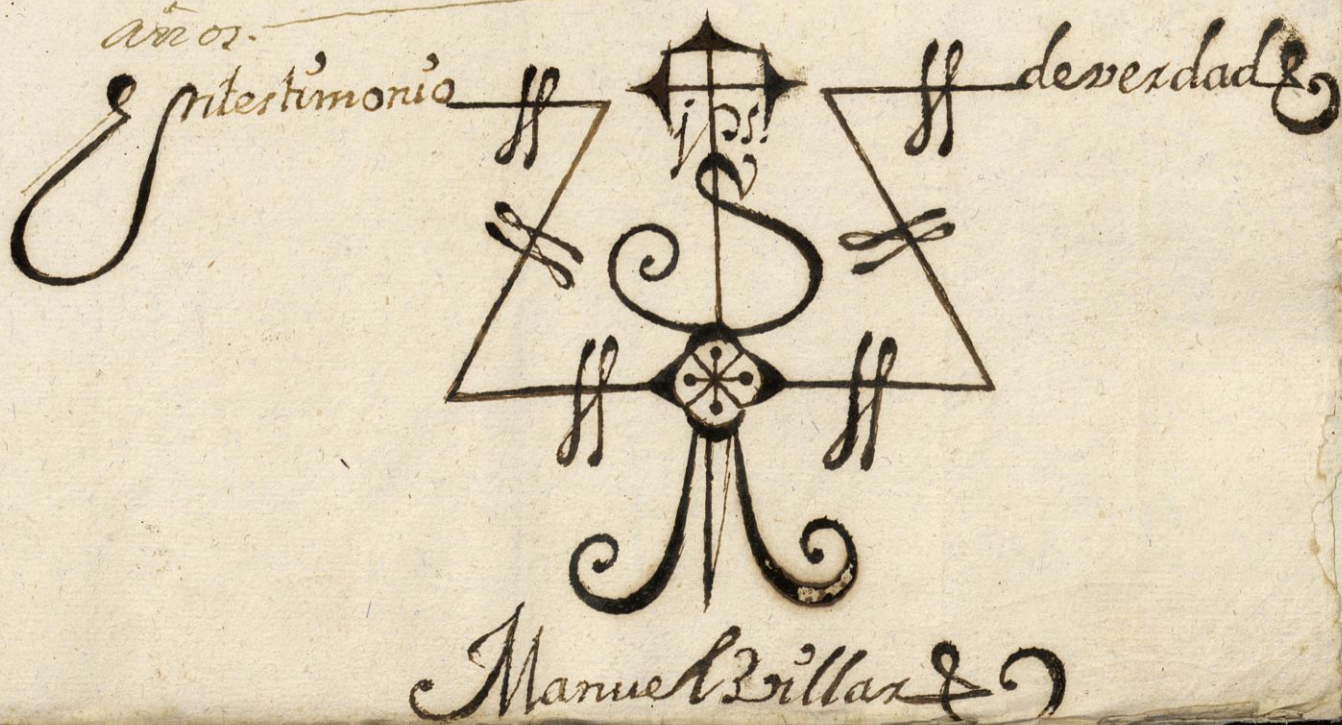 años.
En testimonio de verdad
Manuel Villar